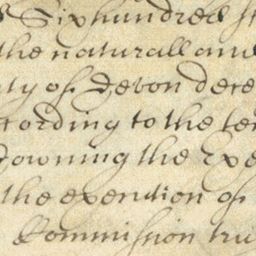 Sixhundred
the naturall and
ty of Devon dece
cording to the te
owning the Exe
the execution of
Commission tru